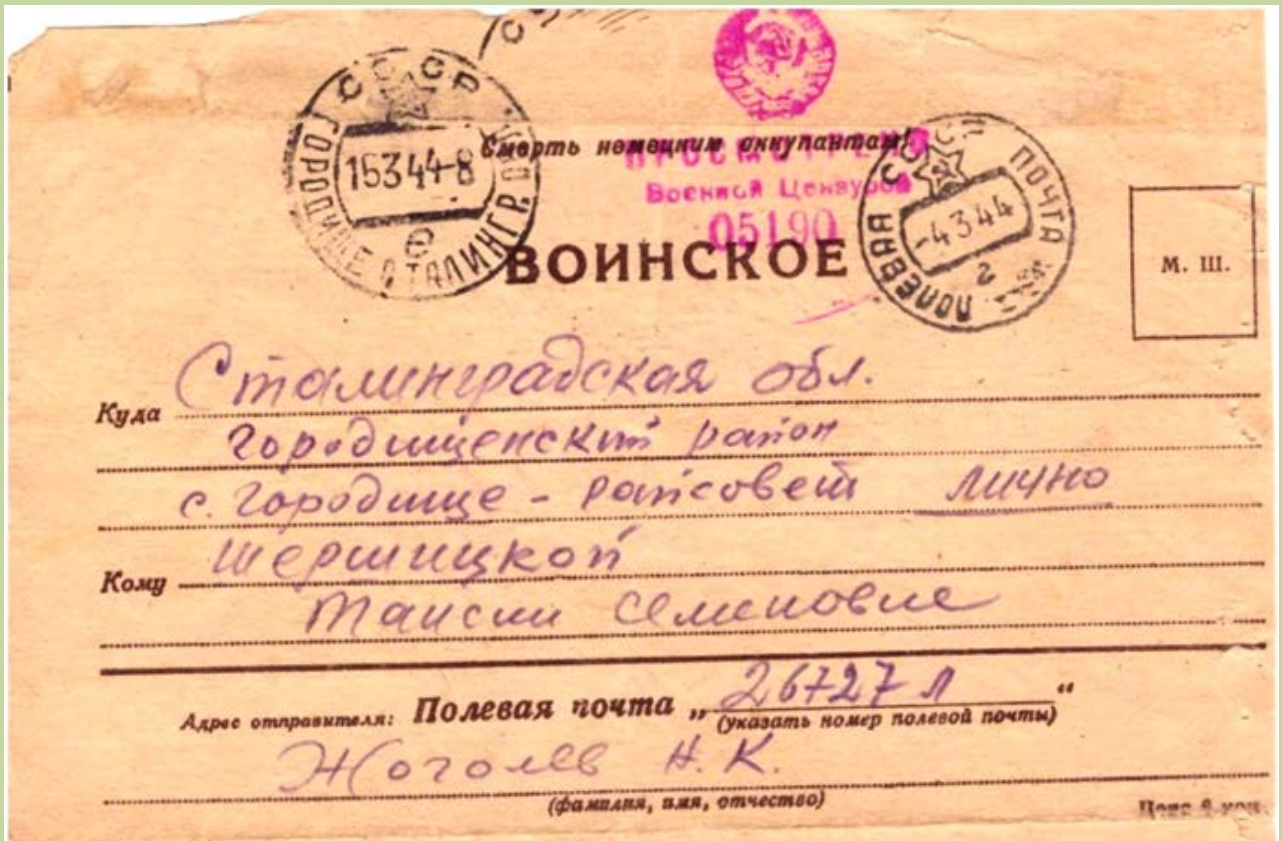 СССР
ГОРОДИЩЕ СТАЛИНГР. ОБЛ.
15344-8
Смерть немецким оккупантам!
ПРОСМОТРЕНО
Военной Цензурой
05190
СССР
ПОЛЕВАЯ ПОЧТА
-4344
г
ВОИНСКОЕ
М. Ш.
Куда Сталинградская обл.
Городищенский район
с. Городище - райсовет лично
Кому Шершицкой
Таисии Семеновне
Адрес отправителя: Полевая почта „26727 Л“
(указать номер полевой почты)
Жоголев Н. К.
(фамилия, имя, отчество)